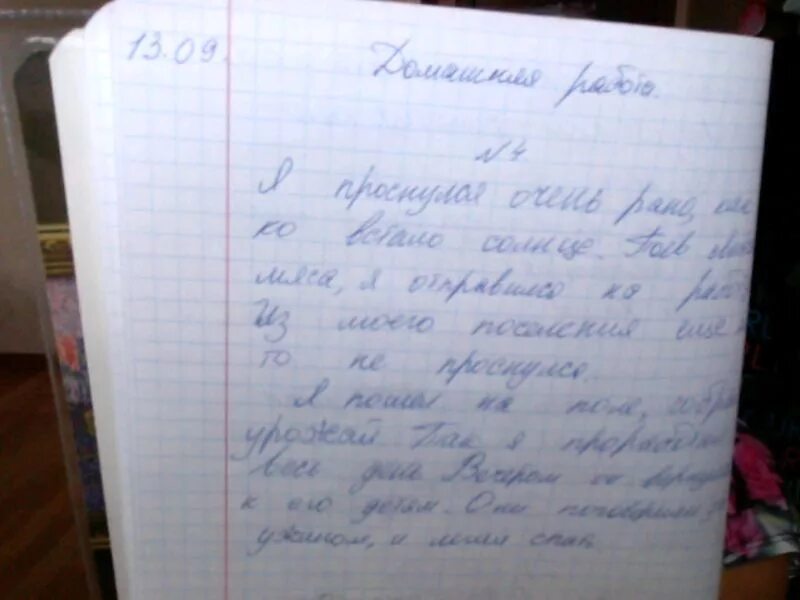 13.09.
Домашняя работа.
№4
Я проснулся очень рано, как
ко встало солнце. Поев
мяса, я отправился на
Из моего поселения еще
то не проснулся.
Я пошел на поле,
урожай Так я
весь день Вечером он
к его детям. Они поговорили
ужином, и легли спать